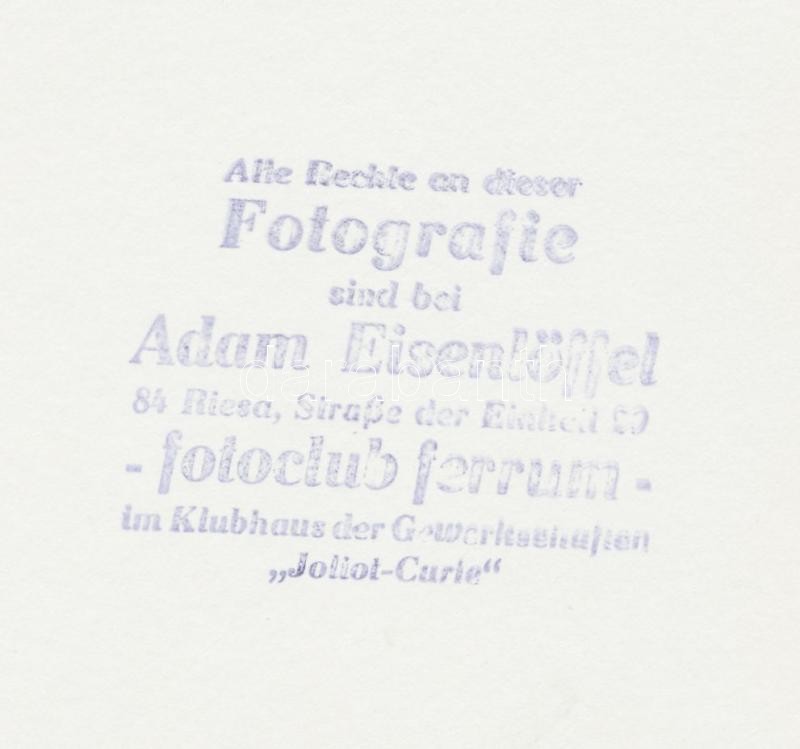 Alle Rechte an dieser
Fotografie
sind bei
Adam Eisenlöffel
darabanth
84 Riesa, Straße der Einheit
- fotoclub ferrum -
im Klubhaus der Gewerkschaften
„Joliot-Curie“